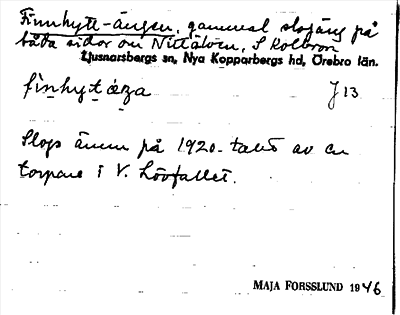 Finnhytt-ängen, gammal slogäng på
båda sidor om Nittälven, S Kolbron
Ljusnarsbergs sn, Nya Kopparbergs hd, Örebro län.
finhytæŋa J 13
Slogs ännu på 1920-talet av en
torpare i V. Lövfallet.
MAJA FORSSLUND 1946